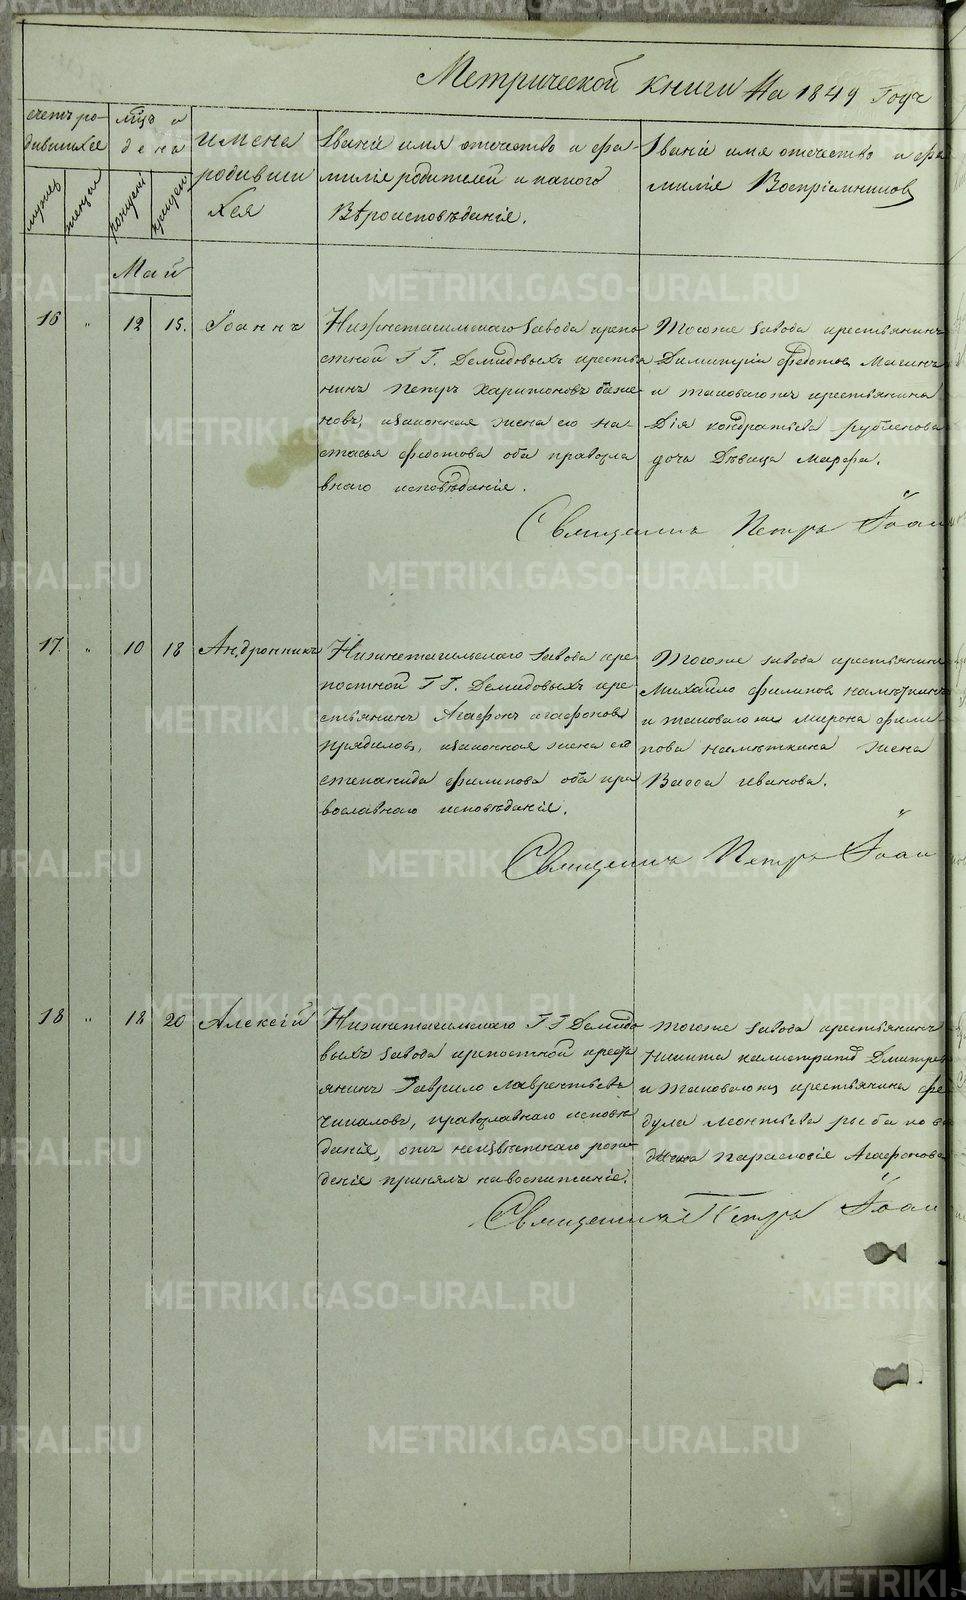 Метрической книги на 1849 годъ
счетъ ро-
дившихся
мужес
женска
Мѣц. и
дена
рожденї
крещен
имена
родивши
хся
Званіе имя отечество и фа-
милїе родителей и какого
Вѣроисповѣданїе.
Званїе имя отечество и фа
милїе Воспрїемниковъ
Май
16 " 12 15. Іоаннъ
Нижнетагильскаго завода крепо
стной Г.Г. Демидовыхъ крестья
нинъ Петръ Харитоновъ баже-
новъ, изаконная жена его На-
стасья федотова оба правосла
внаго исповѣданїя.
Тогоже завода крестьянинъ
Димитрїй федотовъ
и таковагоже крестьянина
кондратьева рубленова
дочь дѣвица марфа.
Священникъ Петръ Іоан
17. " 10 18 Андронникъ
Нижнетагильскаго завода кре-
постной Г.Г. Демидовыхъ кре-
стьянинъ Агафонъ агафоновъ
прядиловъ, изаконная жена его
степанида филипова оба пра
вославнаго исповѣданїе.
Тогоже завода крестьянинъ
Михайло филиповъ намѣткинъ
и таковагоже мирона фили-
пова намѣткина жена
Васса иванова.
Священникъ Петръ Іоан
18 " 18 20 Алексїй
Нижнетагильскаго Г.Г. Демидо
выхъ завода крепостной кресть
янинъ Гаврило лаврентьевъ
чикаловъ, православнаго исповѣ
данїе, отъ неизвѣстнаго рож-
денїе принялъ навоспитанїе.
тогоже завода крестьянинъ
Никита калистратовъ Дмитрев
и таковагоже крестьянина фе
дула леонтьева рыбакова
парасковїе Агафонова
Священникъ Петръ Іоан
METRIKI.GASO-URAL.RU